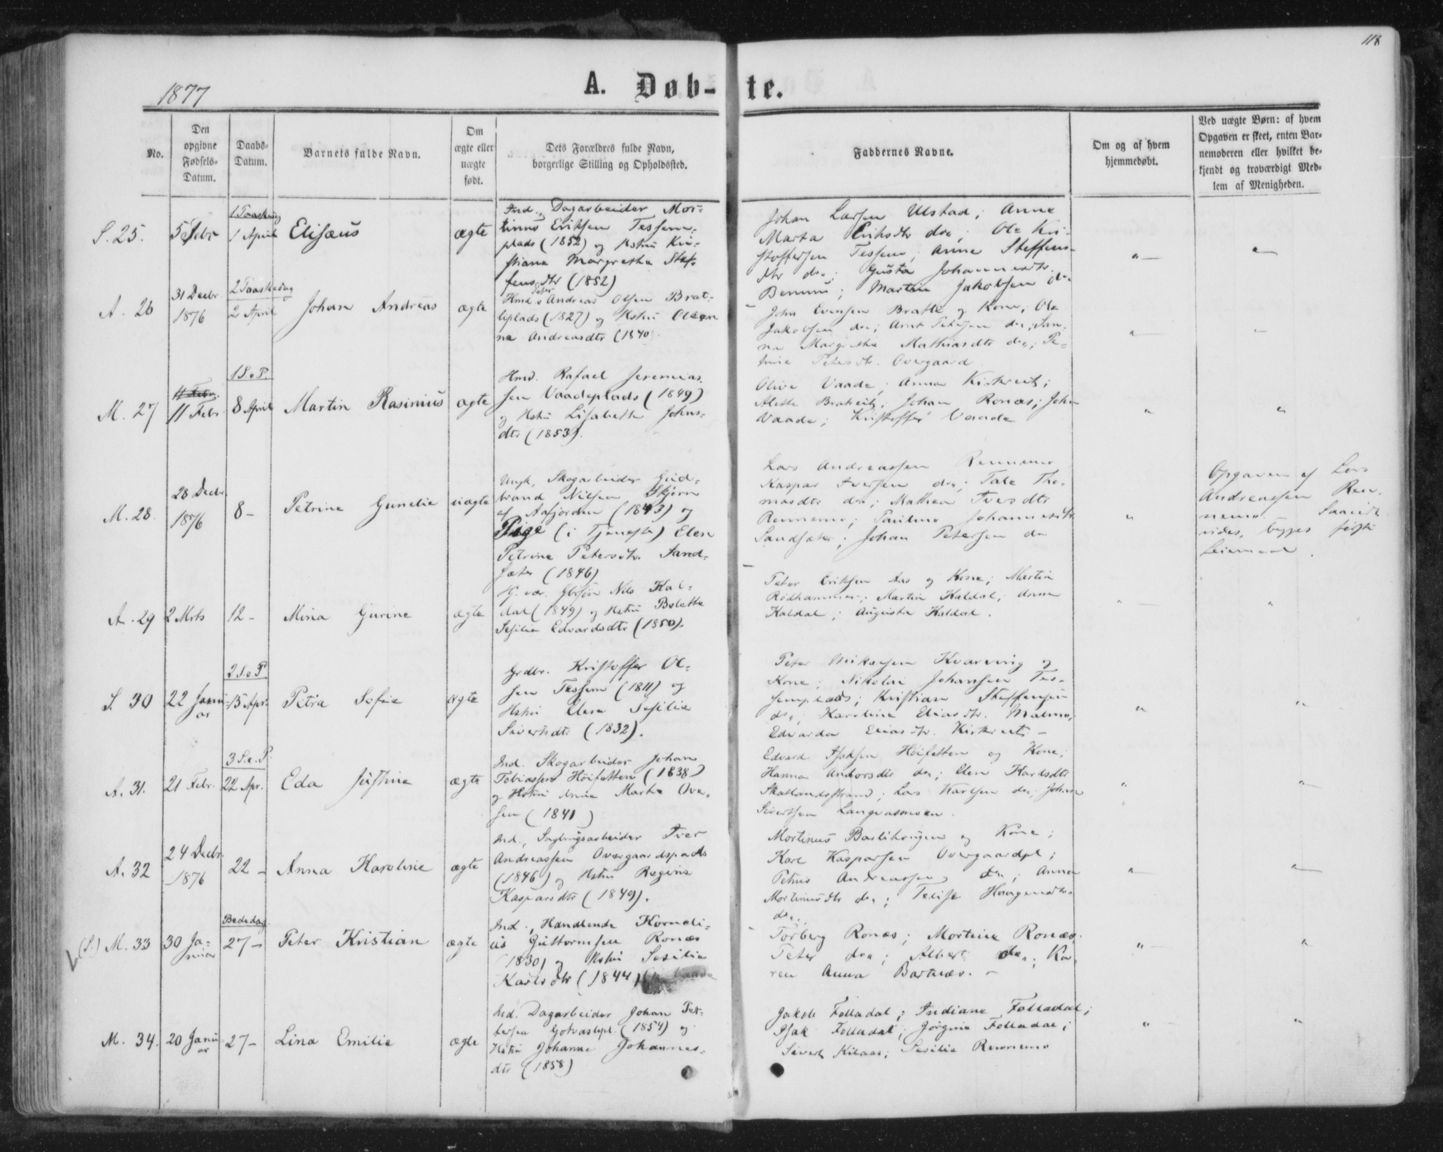 118
1877
A. Døb- te.
No.
Den opgivne Fødsels-Datum.
Daabs-Datum.
Barnets fulde Navn.
Om ægte eller uægte født.
Dets Forældres fulde Navn, borgerlige Stilling og Opholdssted.
Faddernes Navne.
Om og af hvem hjemmedøbt.
Ved uægte Børn: af hvem Opgaven er skeet, enten Barnemoderen eller hvilket bekjendt og troværdigt Medlem af Menigheden.
S. 25. 5 Febr 1 Paaskedag 1 April Elisæus ægte
Ind., Dagarbeider Mor-
tinus Eriksen Tessem-
plads (1852) og Hstru Kri-
stiana Margrethe Stef-
fensdtr (1852)
Johan Larsen Ulstad; Anne
Marta Eriksdtr do; Ole Kri-
stoffersen Tessem; Anne Steffens-
dtr do; Gusta Johannesdtr
; Martin Jakobsen do
A. 26 31 Decbr 1876 2 Paaskedag 2 April Johan Andreas ægte
Hmd. Andreas Olsen Brat-
teplads (1827) og Hstru
Andreasdtr (1840)
John Evensen Bratte og Kone; Ole
Jakobsen do; Arnt Petersen do;
Margrethe Mathiasdtr do; Pe-
Petersdtr. Overgaard
M. 27 11 Febr 1 S.e.P. 8 April Martin Rasinius ægte
Hmd. Rafael Jeremias-
sen Vaadeplads (1849)
og Hstru Lisabeth Johns-
dtr (1853).
Oline Vaade; Anna Kirkreit;
Johan Ronæs; John
Vaade; Kristoffer Vaade
M. 28. 28 Decbr 1876 8 – Petrine Gunelie uægte
Ungk. Skogarbeider Gud-
brand Nilsen Skjern
af Aafjorden (1843) og
Pige (i Tjeneste) Elen
Petrine Petersdtr. Sand-
sæter (1846)
Lars Andreassen Rennemo
Kaspar Iversen do; Tale Tho-
masdtr do; Iversdtr
Rennemo; Pauline Johannesdtr
Sandsæter; Johan Petersen do
Opgaven af Lars
Andreassen Ren-
nemo. Saavidt
vides, begges første
Leiermaal.
A. 29 2 Mrts 12 – Mina Gurine ægte
Nils Kal-
dal (1849) og Hstru Boletta
Sesilia Edvardsdtr (1850).
Peter Eriksen Aas og Kone; Martin
Rødhammer; Martin Kaldal; Anna
Kaldal; Augusta Kaldal.
S. 30 22 Januar 2 S.e.P. 15 Apr. Petra Sofie ægte
Grdbr. Kristoffer Ol-
sen Tessem (1811) og
Hstru Elen Sesilie
Sivertsdtr (1832).
Peter Mikaelsen Kvarving og
Kone; Nikolai Johansen Tes-
semplads; Kristian Steffensen
do; Karoline Eliasdtr. Malmo;
Edvarda Eliasdtr. Kirkreit –
A. 31. 21 Febr. 3 S.e.P. 22 Apr. Eda Justine ægte
Ind. Skogarbeider Johan
Tobiassen Høifetten (1838)
og Hstru Anne Marta Ove-
sen (1841)
Edvard Høifetten og Kone;
Hanna Andorsdtr do; Elen Hardsdtr
; Lars Karlsen do; Johan
Sivertsen
A. 32 24 Decbr 1876 22 – Anna Karoline ægte
Ind., Iver
Andreassen Overgaardsplads
(1846) og Hstru Regine
Kasparsdtr (1849).
Mortinus Bartikeigen og Kone;
Karl Kasparsen Overgaardpl;
Petrus Andreassen do; Anna
Mortinusdtr do; Haagensdtr
do.
(S.) M. 33 30 Januar Bededag 27 – Peter Kristian ægte
Ind., Handlende Korneli-
us Guttormsen Ronæs
(1830) og Hstru Sesilie
Karlsdtr (1844)
Torberg Ronæs; Mortine Ronæs.
Peter do; Albert do; Ka-
ren Anna Bartnæs. –
M. 34. 20 Januar 27 – Lina Emilie ægte
Ind. Dagarbeider Johan Pet-
tersen (1854) og
Hstru Johanne Johannes-
dtr (1858)
Jakob Folladal; Indiane Folladal;
Isak Folladal; Jørgine Folladal;
Sivert Kilaas; Sesilie Rennemo